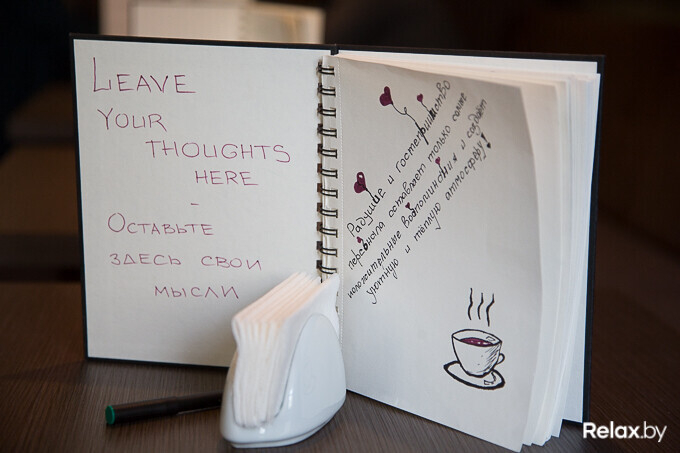 LEAVE
YOUR
THOUGHTS
HERE
-
ОСТАВЬТЕ
ЗДЕСЬ СВОИ
МЫСЛИ
Радушие и гостеприимство
персонала оставляет только самые
положительные воспоминания и создаёт
уютную и тёплую атмосферу!
Relax.by